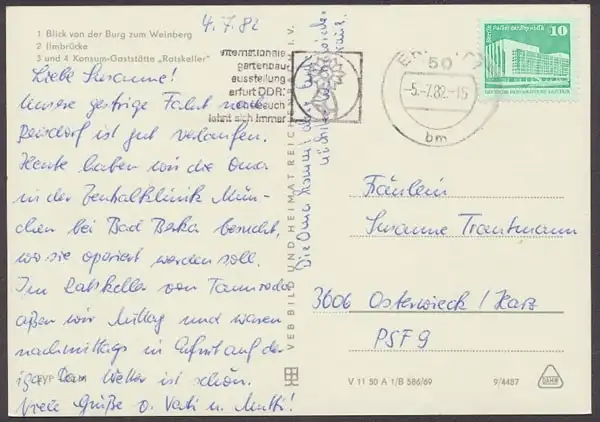 4.7.82
1 Blick von der Burg zum Weinberg
2 Ilmbrücke
3 und 4 Konsum-Gaststätte „Ratskeller“
Liebe Susanne!
Unsere gestrige Fahrt nach
ist gut verlaufen.
Heute haben wir die Oma
in der Zentralklinik Mün-
chen bei Bad Berka besucht,
wo sie operiert werden soll.
Im Ratskeller von Tannroda
aßen wir Mittag und waren
nachmittags in Erfurt auf der
iga. Das Wetter ist schön.
Viele Grüße v. Vati u. Mutti!
Die Oma kommt
internationale
gartenbau
ausstellung
erfurt DDR:
ein besuch
lohnt sich immer
VEB BILD UND HEIMAT REICHENBACH I. V.
ERFURT
50
-5.-7.82.-15
bm
10
Fräulein
Susanne Trautmann
3606 Osterwieck / Harz
PSF 9
V 11 50 A 1/B 586/69
9/4487